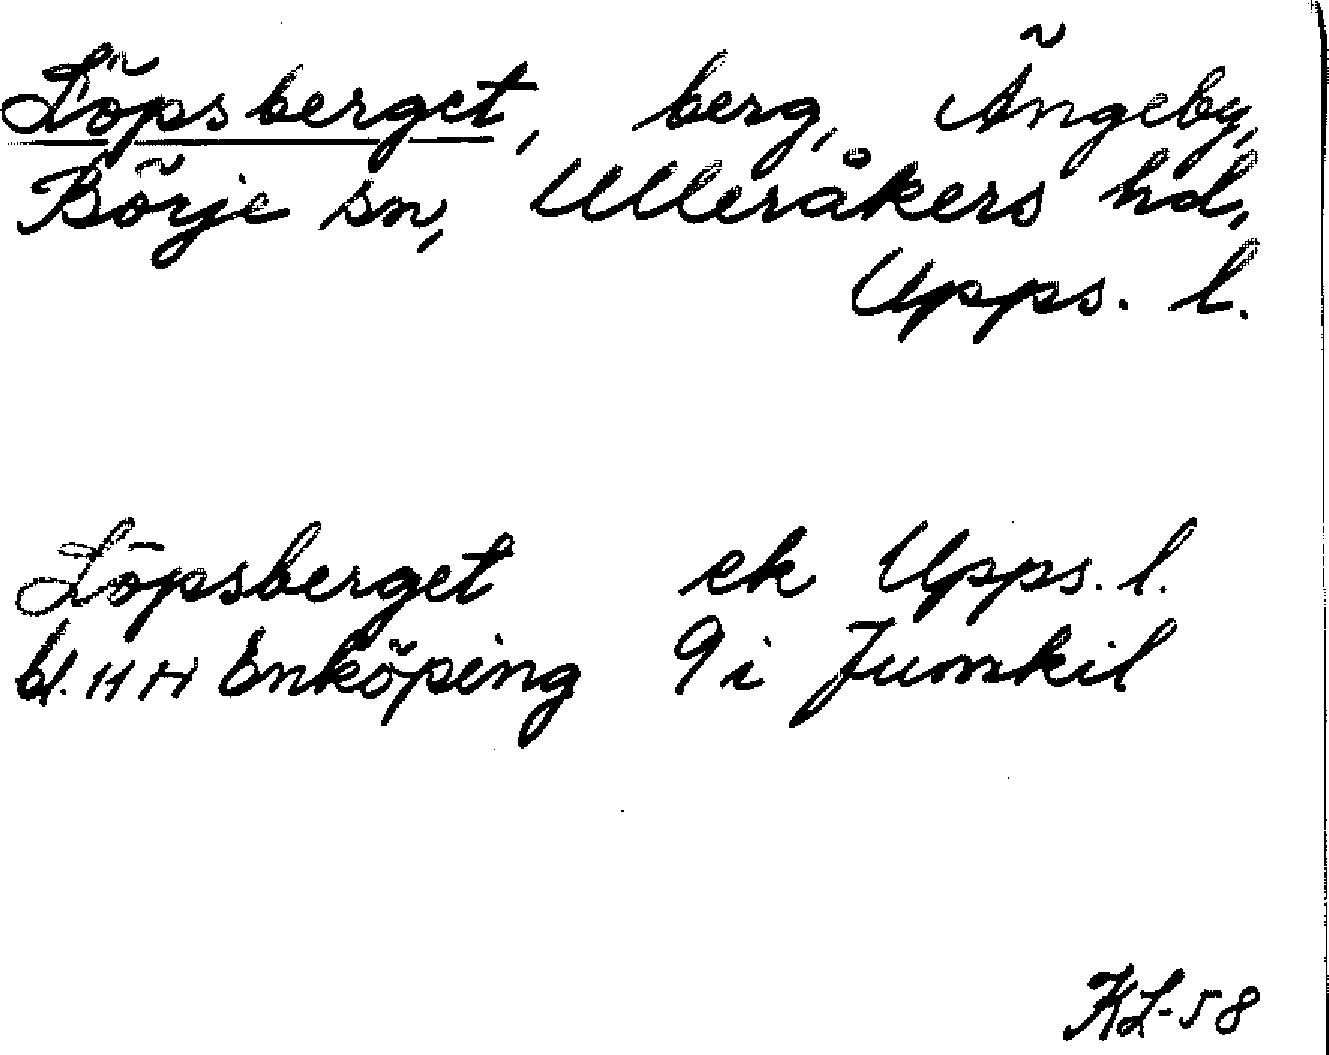 Löpsberget, berg, Ängeby,
Börje sn, Ulleråkers hd,
Upps. l.
Löpsberget ek Upps. l.
bl. 11 H Enköping 9 i Jumkil
KL-58